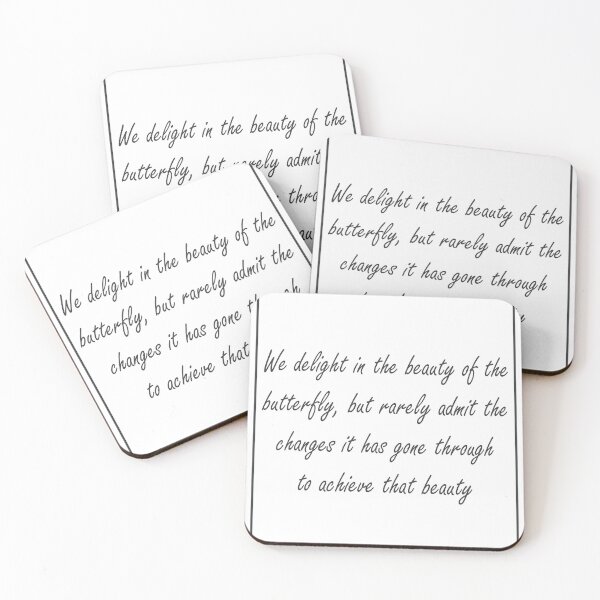 We delight in the beauty of the
butterfly, but rarely admit
We delight in the beauty of the
butterfly, but rarely admit the
changes it has gone through
We delight in the beauty of the
butterfly, but rarely admit the
changes it has gone
to achieve that
We delight in the beauty of the
butterfly, but rarely admit the
changes it has gone through
to achieve that beauty